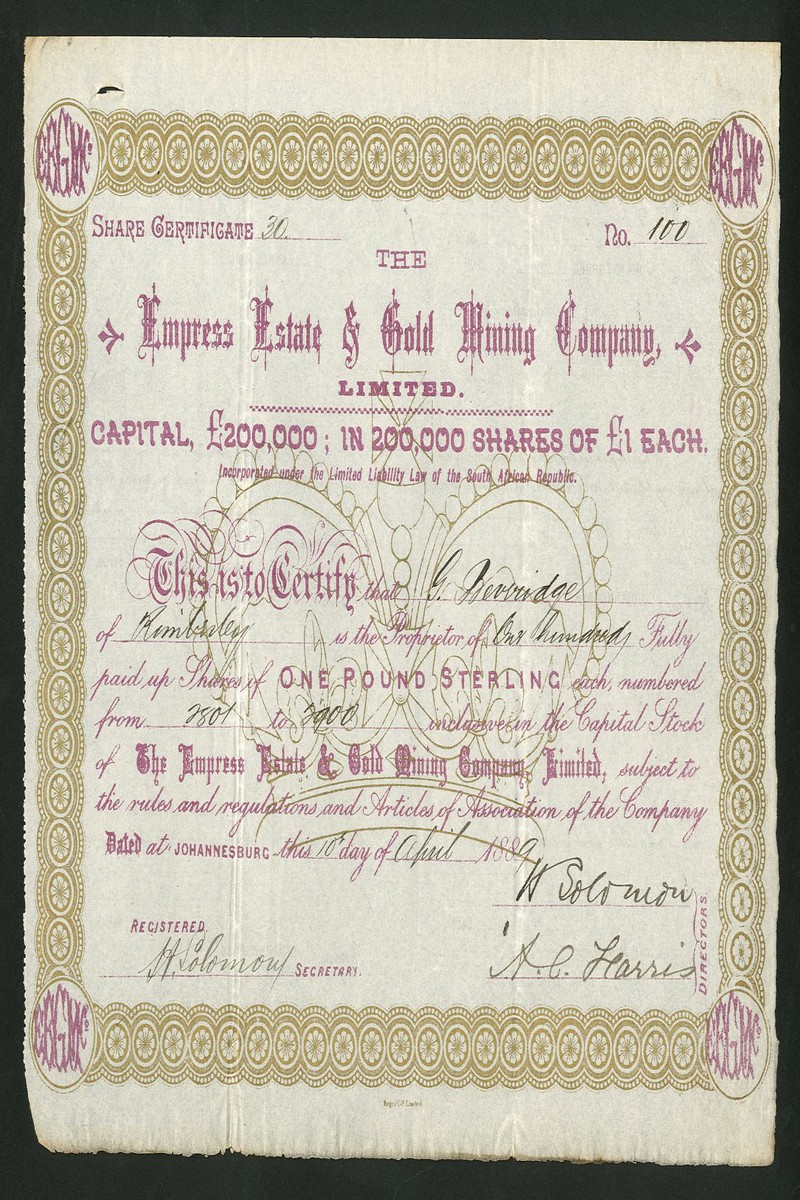 SHARE CERTIFICATE 30. No. 100
THE
Empress Estate & Gold Mining Company,
LIMITED.
CAPITAL, £200,000 ; IN 200,000 SHARES OF £1 EACH.
Incorporated under the Limited Liability Law of the South African Republic.
This is to Certify that G. Beveridge
of Kimberley is the Proprietor of One Hundred Fully
paid up Shares of ONE POUND STERLING each, numbered
from 2801 to 2900 inclusive in the Capital Stock
of The Empress Estate & Gold Mining Company, Limited, subject to
the rules and regulations and Articles of Association of the Company
Dated at JOHANNESBURG this 10th day of April 1889
H Solomon
REGISTERED.
H. Solomon SECRETARY.
A. C. Harris
DIRECTORS